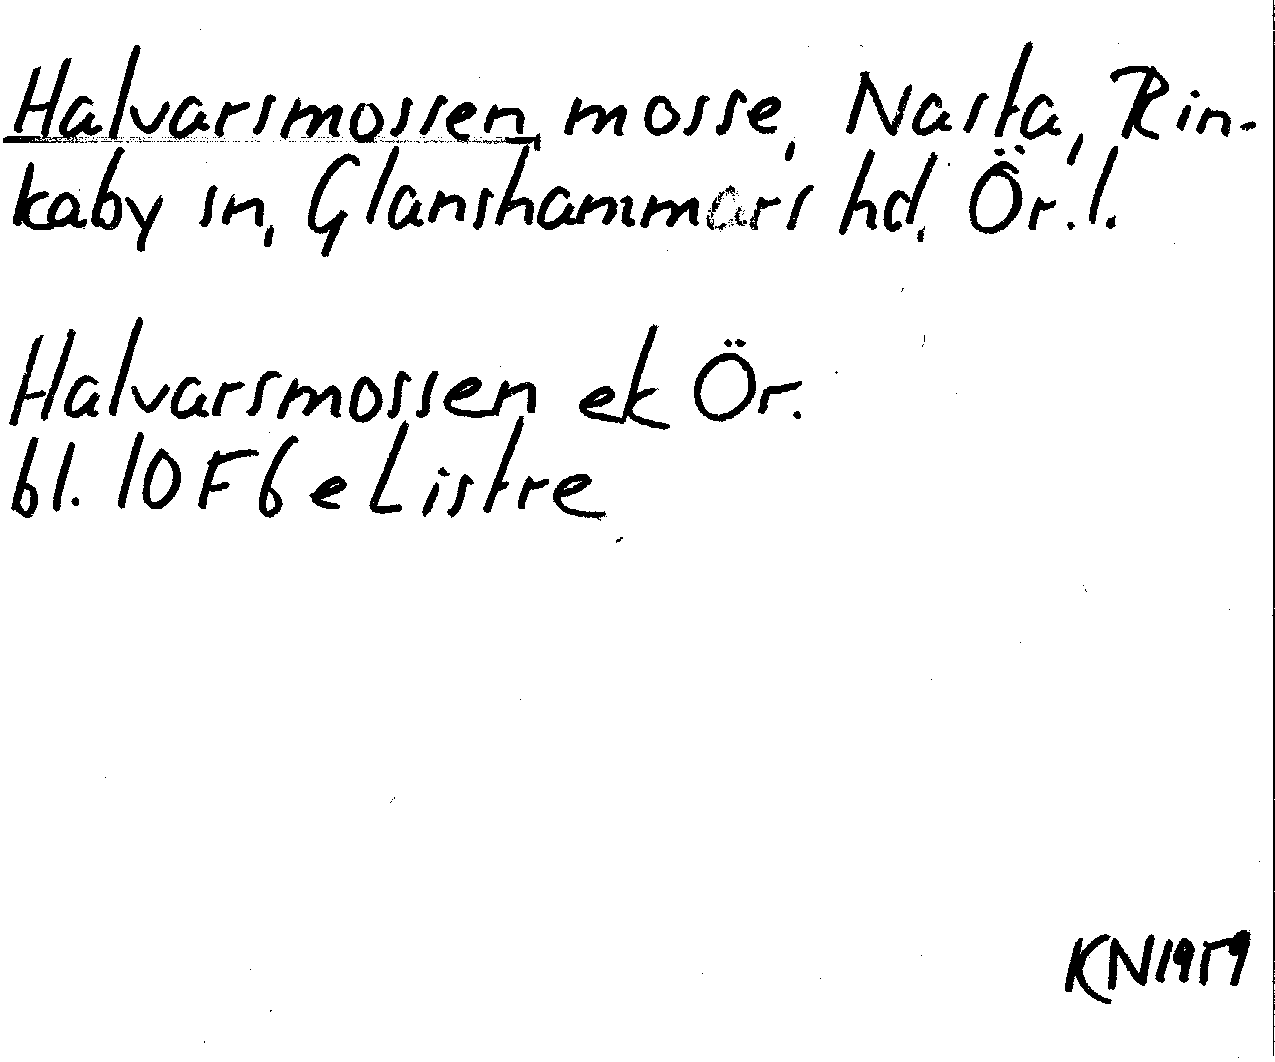 Halvarsmossen, mosse, Nasta, Rin-
kaby sn, Glanshammars hd, Ör. l.
Halvarsmossen ek Ör.
bl. 10F6e Listre
KN1959